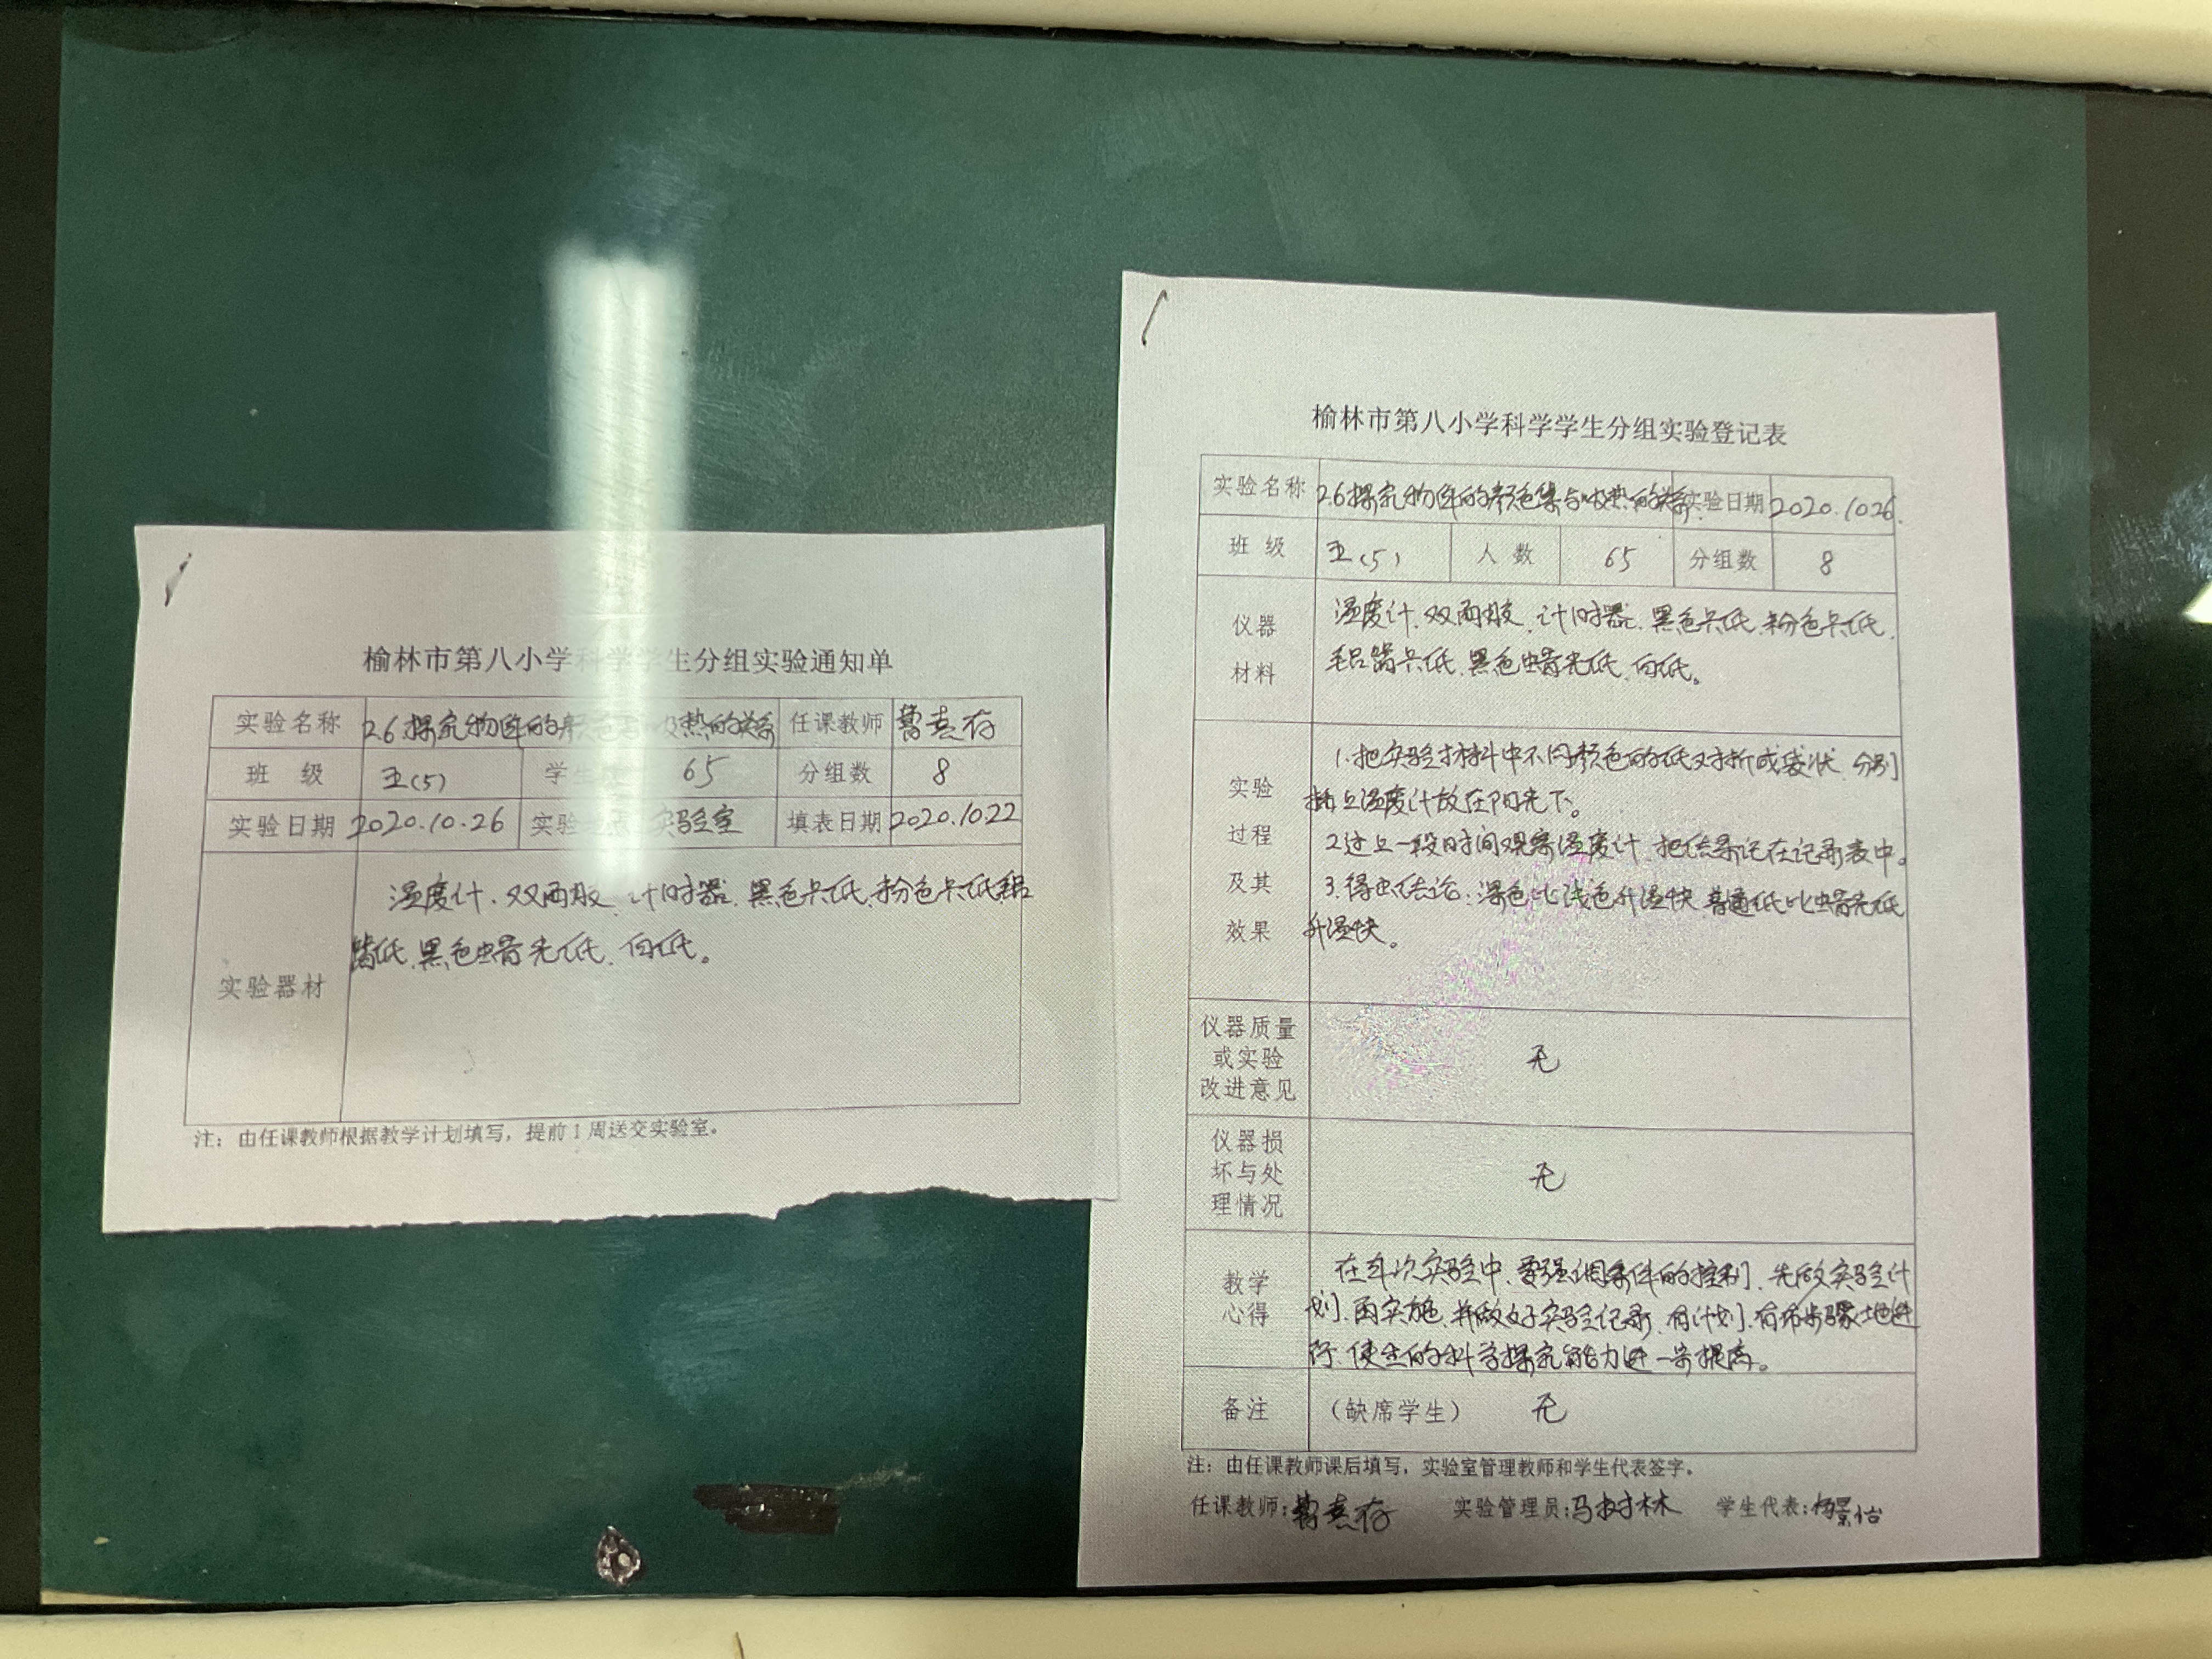 榆林市第八小学科学学生分组实验通知单
实验名称 2.6探究物体的颜色与吸热的关系 任课教师
班 级 五(5) 学生 65 分组数 8
实验日期 2020.10.26 实验 点 实验室 填表日期 2020.10.22
实验器材
温度计、双面胶、计时器、黑色卡纸、粉色卡纸、铝
箔纸、黑色蜡光纸、白纸。
注：由任课教师根据教学计划填写，提前1周送交实验室。
榆林市第八小学科学学生分组实验登记表
实验名称 2.6探究物体的颜色与吸热的关系 实验日期 2020.10 26.
班 级 五(5) 人 数 65 分组数 8
仪器
材料
温度计、双面胶、计时器、黑色卡纸、粉色卡纸、
铝箔卡纸、黑色蜡光纸、白纸。
实验
过程
及其
效果
1.把实验材料中不同颜色的纸对折成袋状、分别
插上温度计放在阳光下。
2.过上一段时间观察温度计、把结果记在记录表中。
3.得出结论：深色比浅色升温快、普通纸比蜡光纸
升温快。
仪器质量
或实验
改进意见
无
仪器损
坏与处
理情况
无
教学
心得
在本次实验中、要强调条件的控制、先做实验计
划、再实施、并做好实验记录、有计划、有步骤地进
行、使生的科学探究能力进一步提高。
备注 （缺席学生） 无
注：由任课教师课后填写，实验室管理教师和学生代表签字。
任课教师： 实验管理员：马树林 学生代表：杨景怡